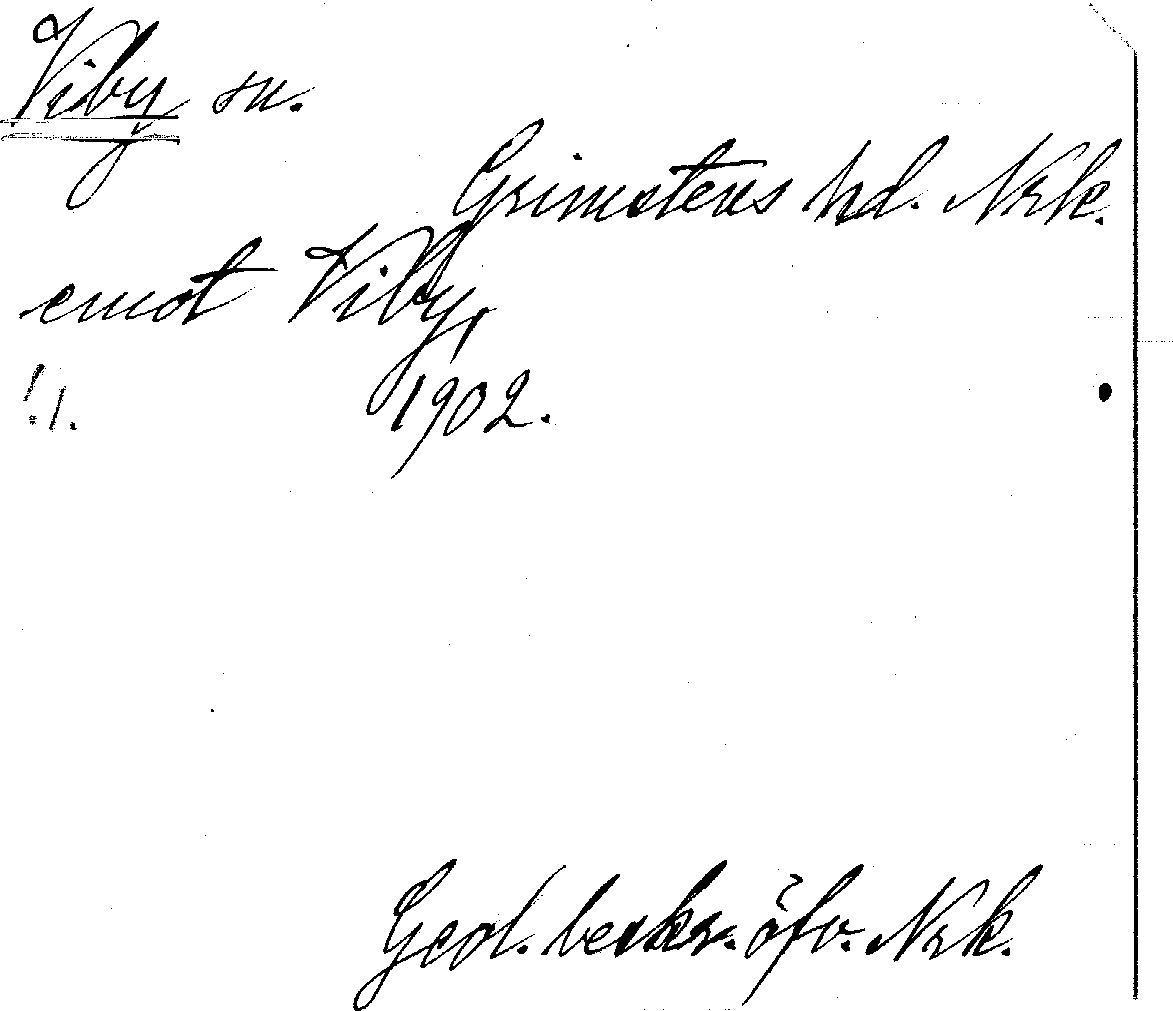 Viby sn.
Grimstens hd. Nrk.
emot Viby,
1902.
Geol. beskr. öfv. Nrk.